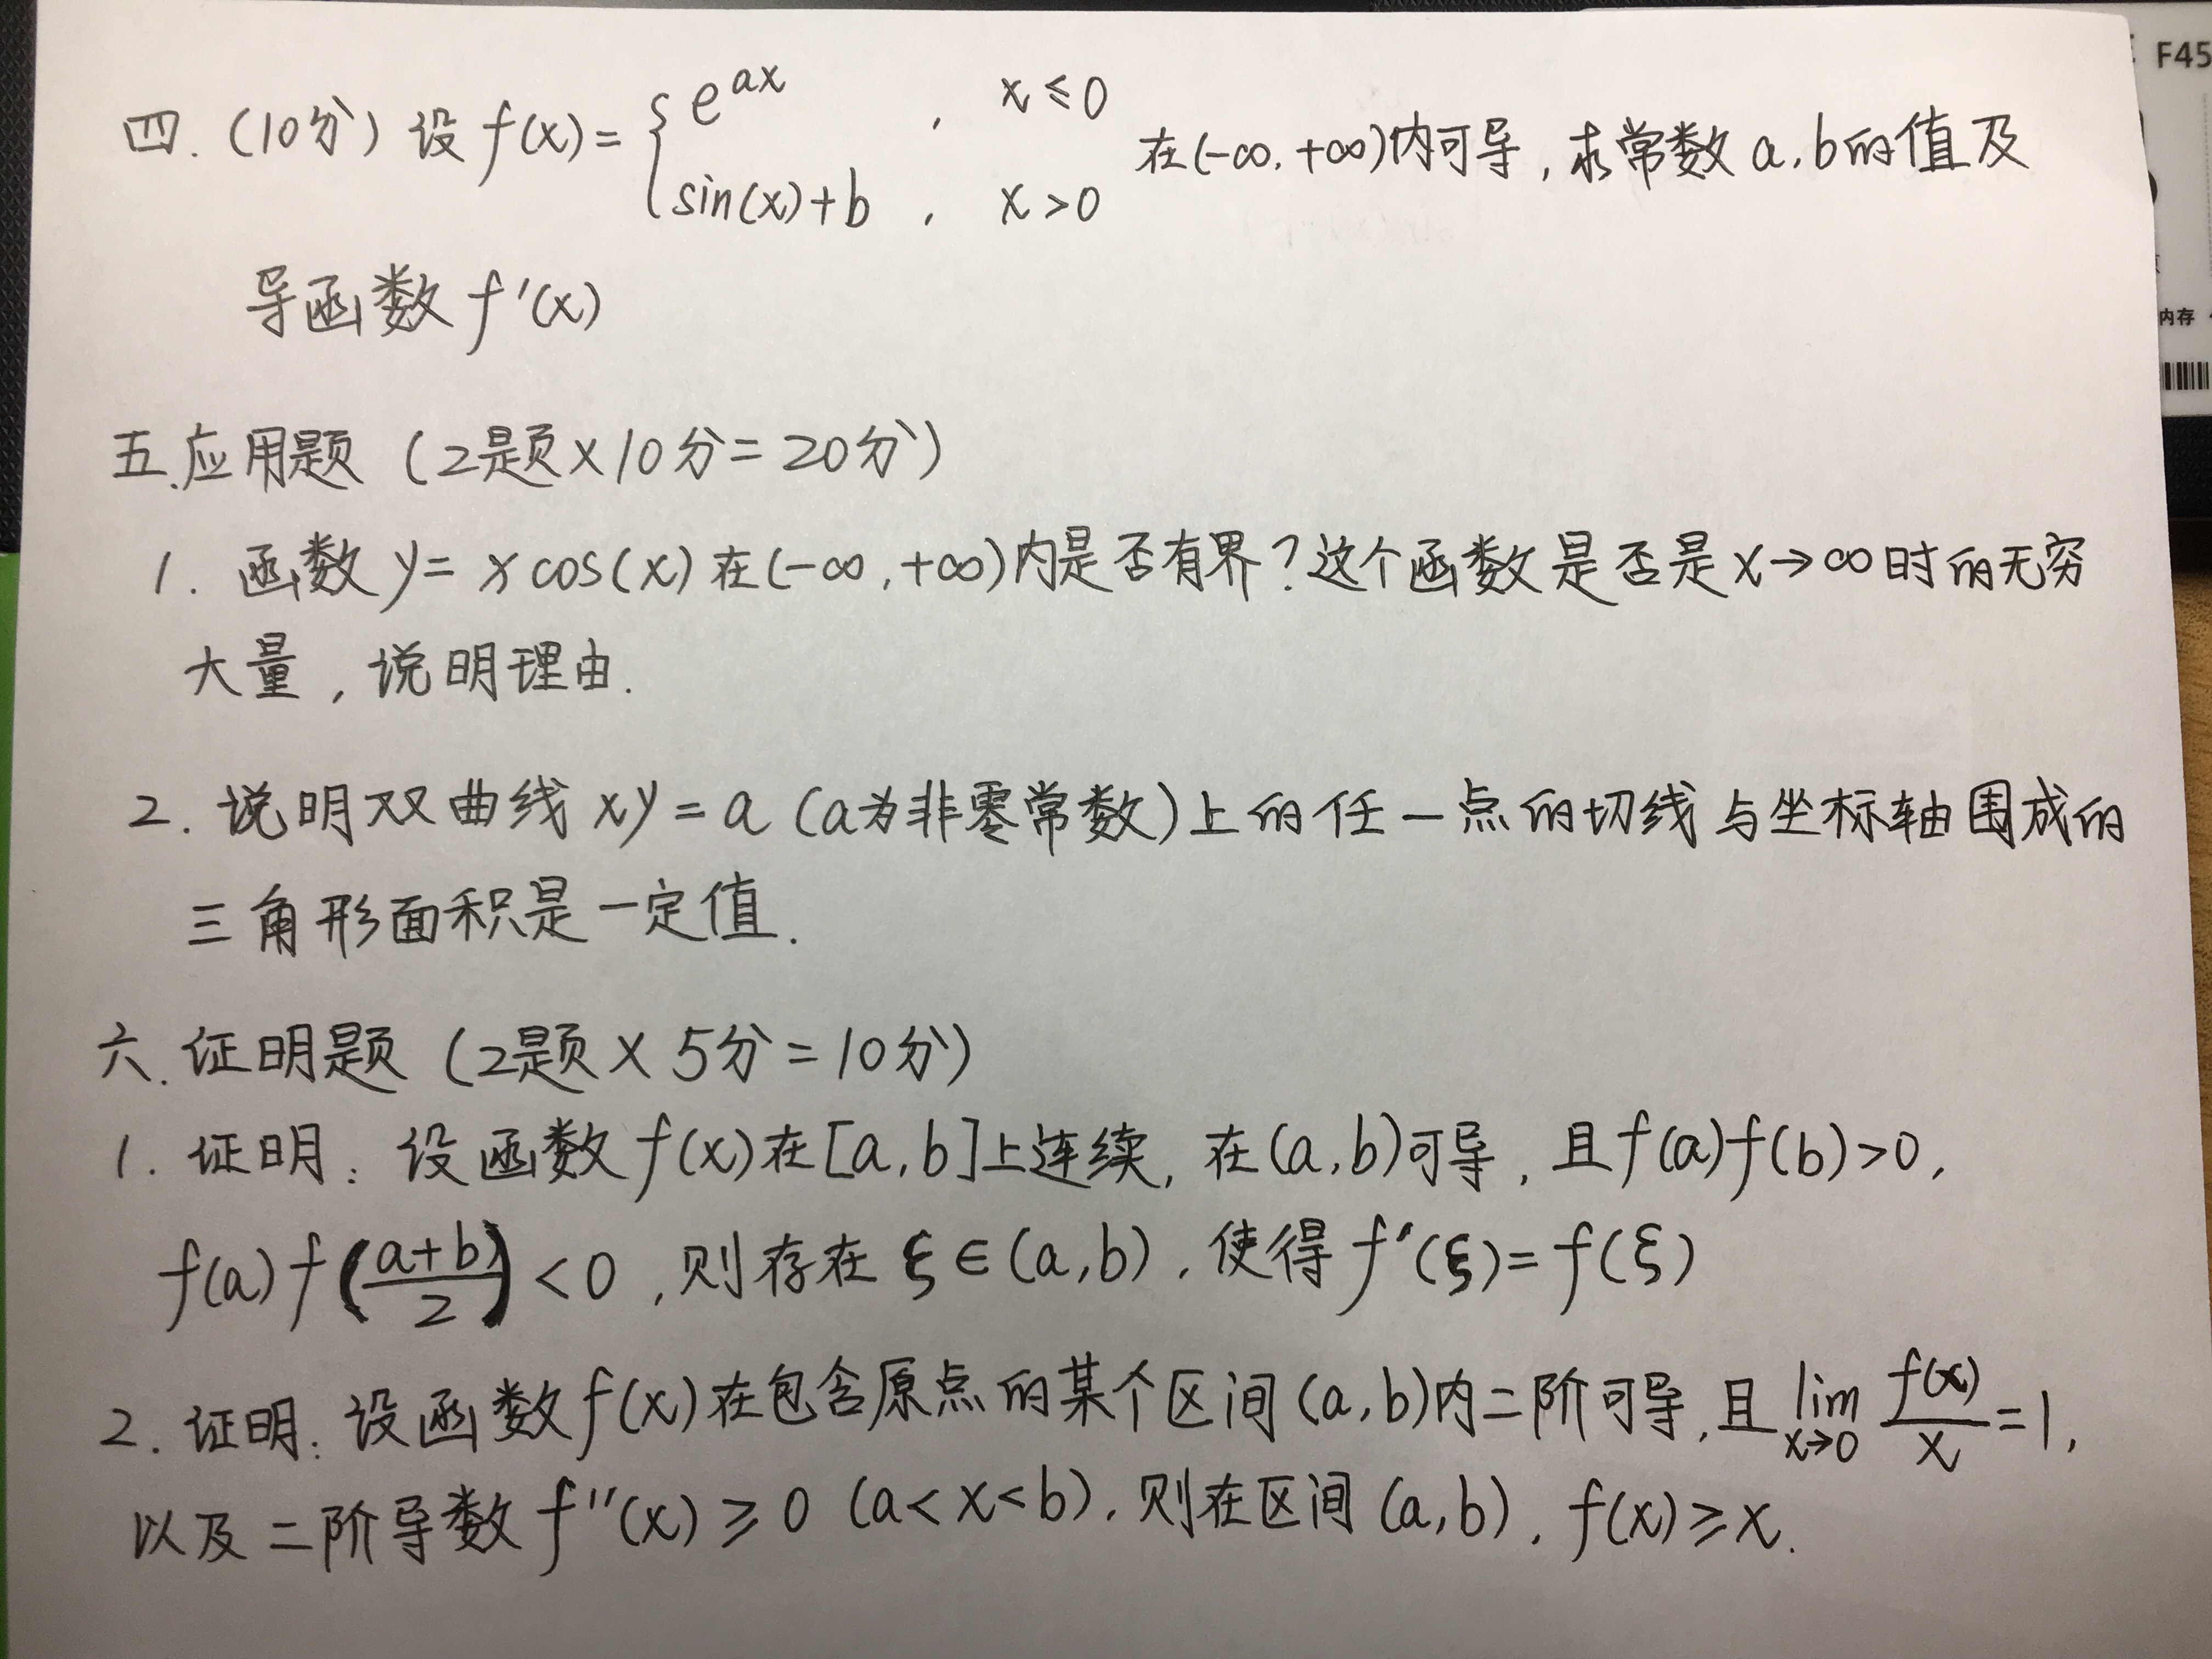 四.(10分)设 f(x)= { e^{ax} , x≤0 ; sin(x)+b , x>0 在(-∞,+∞)内可导,求常数a,b的值及
导函数 f'(x)
五.应用题 (2题×10分=20分)
1. 函数 y= x cos(x) 在(-∞,+∞)内是否有界?这个函数是否是x→∞时的无穷
大量,说明理由.
2. 说明双曲线 xy=a (a为非零常数)上的任一点的切线与坐标轴围成的
三角形面积是一定值.
六.证明题 (2题×5分=10分)
1. 证明: 设函数f(x)在[a,b]上连续,在(a,b)可导,且f(a)f(b)>0,
f(a)f((a+b)/2)<0,则存在ξ∈(a,b),使得f'(ξ)=f(ξ)
2. 证明: 设函数f(x)在包含原点的某个区间(a,b)内二阶可导,且 lim_{x→0} f(x)/x =1,
以及二阶导数f''(x)≥0 (a<x<b),则在区间(a,b),f(x)≥x.
F45
内存